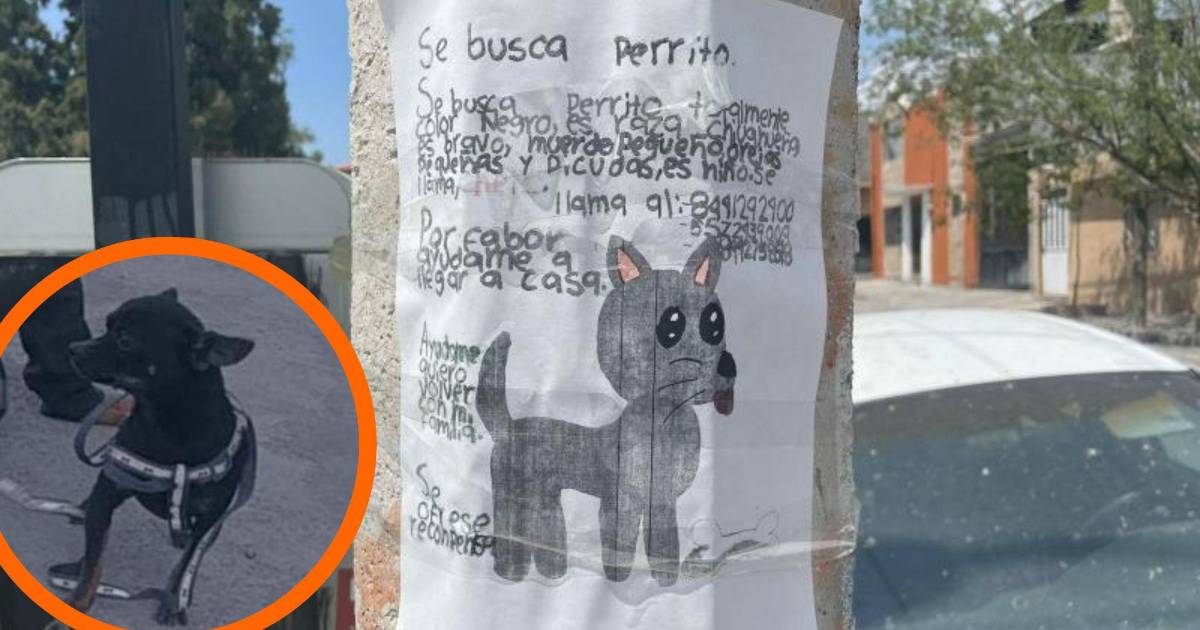 Se busca perrito.
Se busca perrito totalmente
color Negro, es raza chuahueña
es bravo, muerde Pequeño orejas
pequeñas y Picudas, es niño. se
llama,
llama al:-8441292900
Por fabor
ayudame a
llegar a casa.
Ayudame
quiero
volver
con mi
familia.
Se
ofrese
recompensa